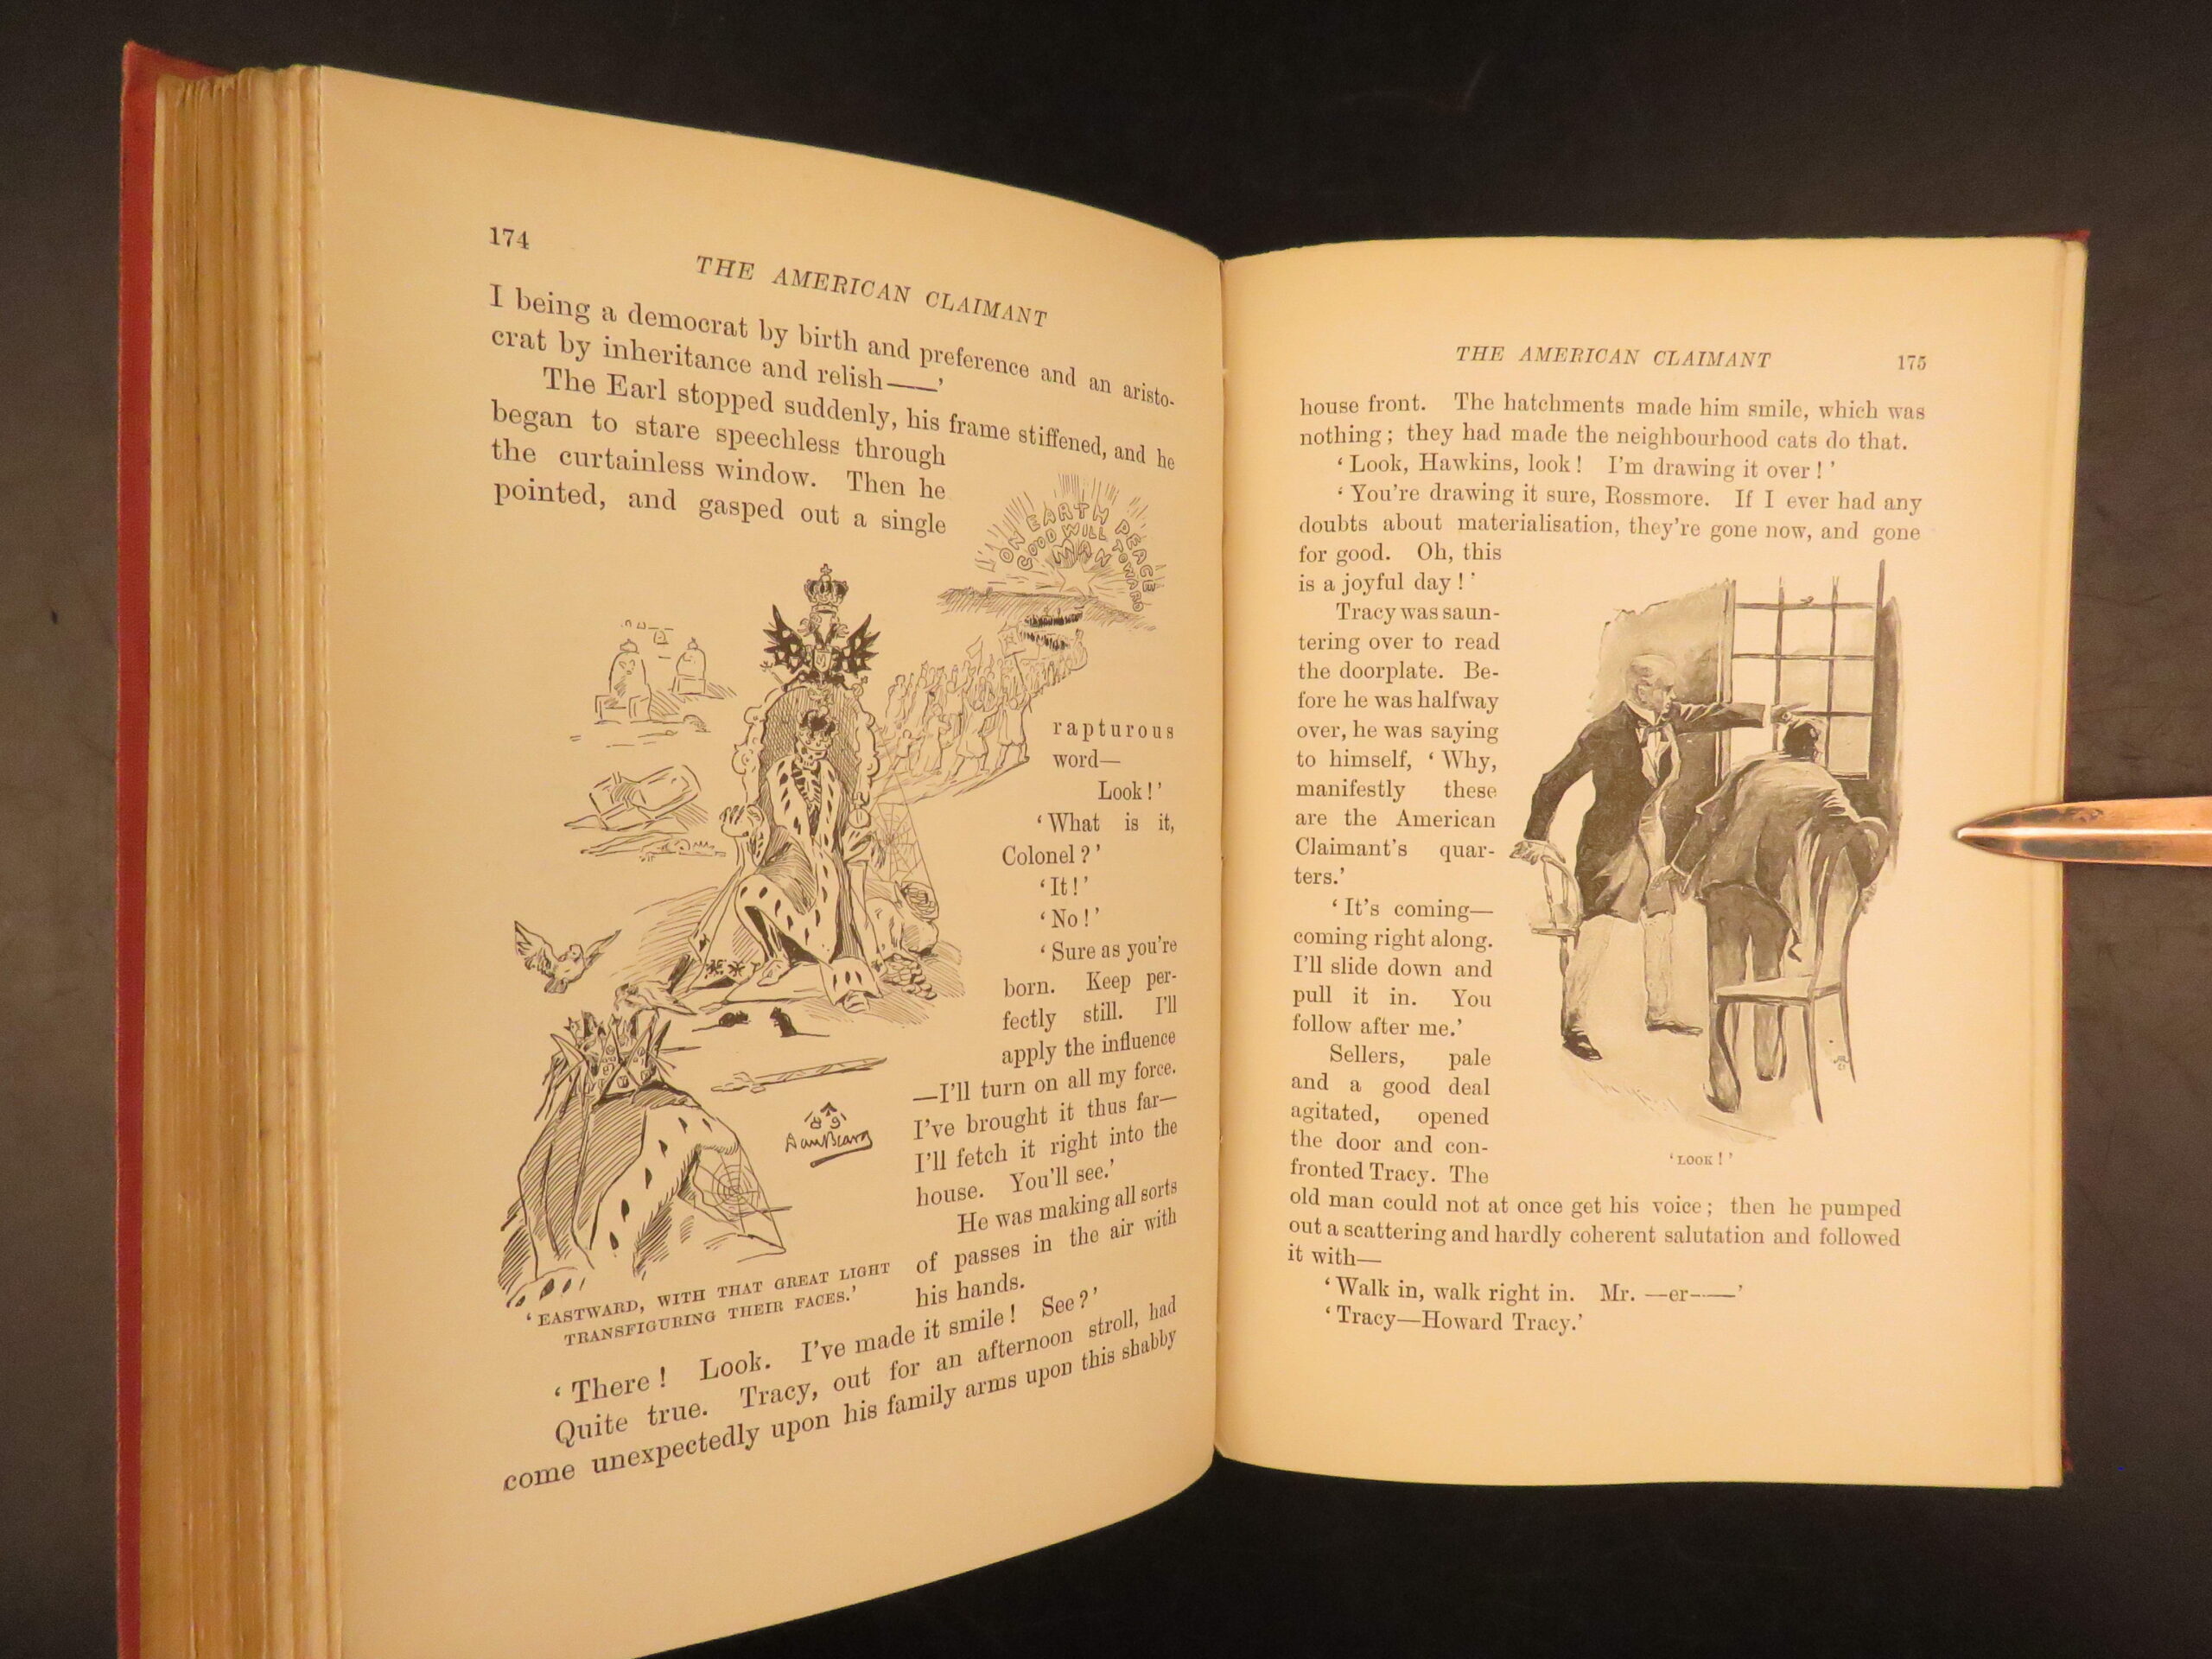 174
THE AMERICAN CLAIMANT
I being a democrat by birth and preference and an aristo-
crat by inheritance and relish——'
The Earl stopped suddenly, his frame stiffened, and he
began to stare speechless through
the curtainless window. Then he
pointed, and gasped out a single
ON EARTH PEACE
GOOD WILL TOWARD
MAN
rapturous
word—
Look!'
'What is it,
Colonel?'
'It!'
'No!'
'Sure as you're
born. Keep per-
fectly still. I'll
apply the influence
—I'll turn on all my force.
I've brought it thus far—
I'll fetch it right into the
house. You'll see.'
He was making all sorts
of passes in the air with
his hands.
Dan Beard
'EASTWARD, WITH THAT GREAT LIGHT
TRANSFIGURING THEIR FACES.'
'There! Look. I've made it smile! See?'
Quite true. Tracy, out for an afternoon stroll, had
come unexpectedly upon his family arms upon this shabby
THE AMERICAN CLAIMANT 175
house front. The hatchments made him smile, which was
nothing; they had made the neighbourhood cats do that.
'Look, Hawkins, look! I'm drawing it over!'
'You're drawing it sure, Rossmore. If I ever had any
doubts about materialisation, they're gone now, and gone
for good. Oh, this
is a joyful day!'
Tracy was saun-
tering over to read
the doorplate. Be-
fore he was halfway
over, he was saying
to himself, 'Why,
manifestly these
are the American
Claimant's quar-
ters.'
'It's coming—
coming right along.
I'll slide down and
pull it in. You
follow after me.'
Sellers, pale
and a good deal
agitated, opened
the door and con-
fronted Tracy. The
'LOOK!'
old man could not at once get his voice; then he pumped
out a scattering and hardly coherent salutation and followed
it with—
'Walk in, walk right in. Mr. —er——'
'Tracy—Howard Tracy.'